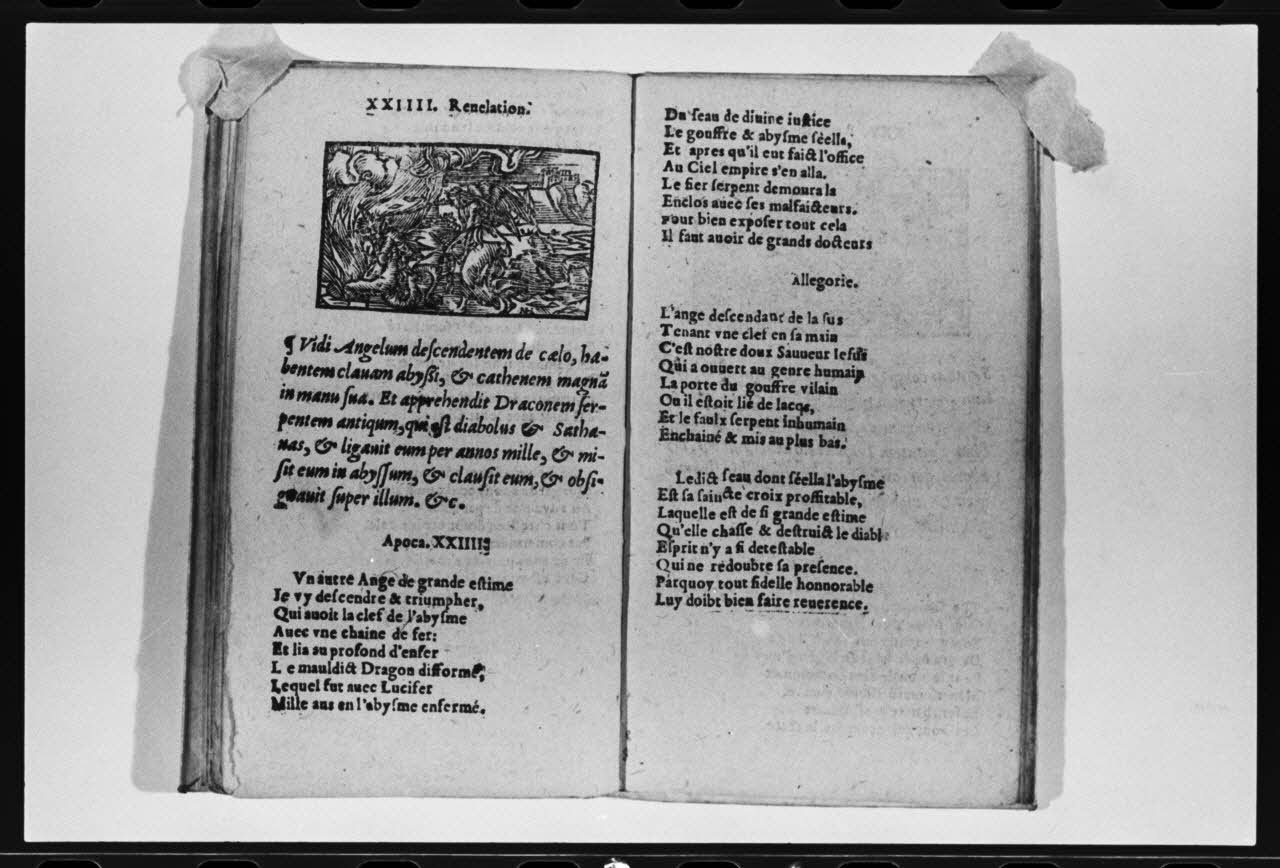 XXIIII. Reuelation.
¶ Vidi Angelum descendentem de cælo, ha-
bentem clauam abyssi, & cathenem magnā
in manu sua. Et apprehendit Draconem ser-
pentem antiqum, qui est diabolus & Satha-
nas, & ligauit eum per annos mille, & mi-
sit eum in abyssum, & clausit eum, & obsi-
gnauit super illum. &c.
Apoca. XXIIII
Vn autre Ange de grande estime
Ie vy descendre & triumpher,
Qui auoit la clef de l'abysme
Auec vne chaine de fer:
Et lia au profond d'enfer
Le mauldict Dragon difformé,
Lequel fut auec Lucifer
Mille ans en l'abysme enfermé.
Du seau de diuine iustice
Le gouffre & abysme séella,
Et apres qu'il eut faict l'office
Au Ciel empire s'en alla.
Le fier serpent demoura la
Enclos auec ses malfaicteurs.
Pour bien exposer tout cela
Il faut auoir de grands docteurs
Allegorie.
L'ange descendant de la sus
Tenant vne clef en sa main
C'est nostre doux Sauueur Iesus
Qui a ouuert au genre humain
La porte du gouffre vilain
Ou il estoit lié de lacqs,
Et le faulx serpent inhumain
Enchainé & mis au plus bas.
Ledict seau dont séella l'abysme
Est sa saincte croix proffitable,
Laquelle est de si grande estime
Qu'elle chasse & destruict le diable
Esprit n'y a si detestable
Qui ne redoubte sa presence.
Parquoy tout fidelle honnorable
Luy doibt bien faire reuerence.